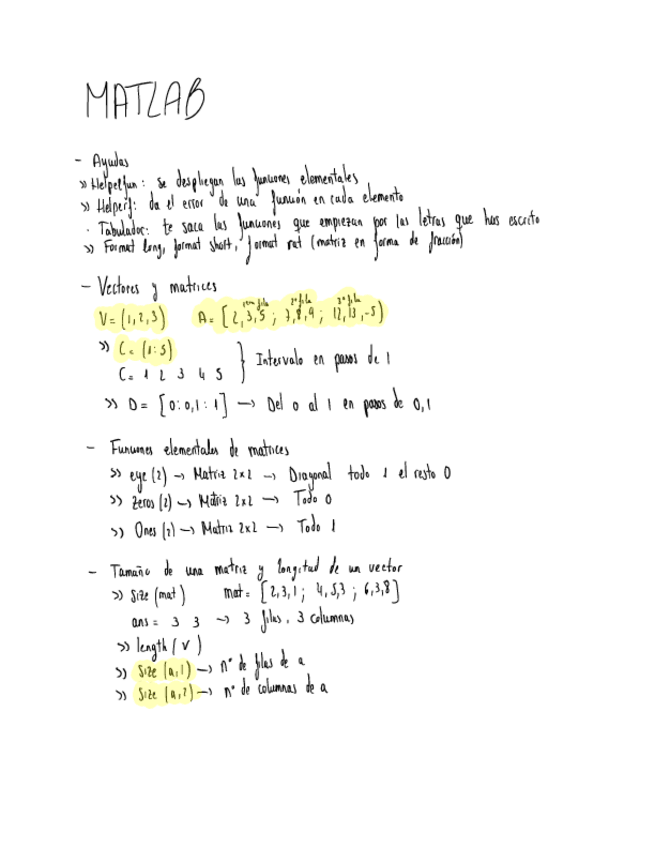 MATLAB
- Ayudas
>> Helpelfun: se despliegan las funciones elementales
>> Helperf: da el error de una función en cada elemento
· Tabulador: te saca las funciones que empiezan por las letras que has escrito
>> Format long, format short, format rat (matriz en forma de fracción)
- Vectores y matrices
1era fila 2ª fila 3ª fila
V=(1,2,3) A=[2,3,5; 7,8,9; 12,13,-5)
>> C=(1:5)
C= 1 2 3 4 5 } Intervalo en pasos de 1
>> D=[0:0,1:1] → Del 0 al 1 en pasos de 0,1
- Funciones elementales de matrices
>> eye(2) → Matriz 2x2 → Diagonal todo 1 el resto 0
>> Zeros(2) → Matriz 2x2 → Todo 0
>> Ones(2) → Matriz 2x2 → Todo 1
- Tamaño de una matriz y longitud de un vector
>> Size(mat) mat=[2,3,1; 4,5,3; 6,3,8]
ans= 3 3 → 3 filas, 3 columnas
>> length(v)
>> Size(a,1) → nº de filas de a
>> Size(a,2) → nº de columnas de a